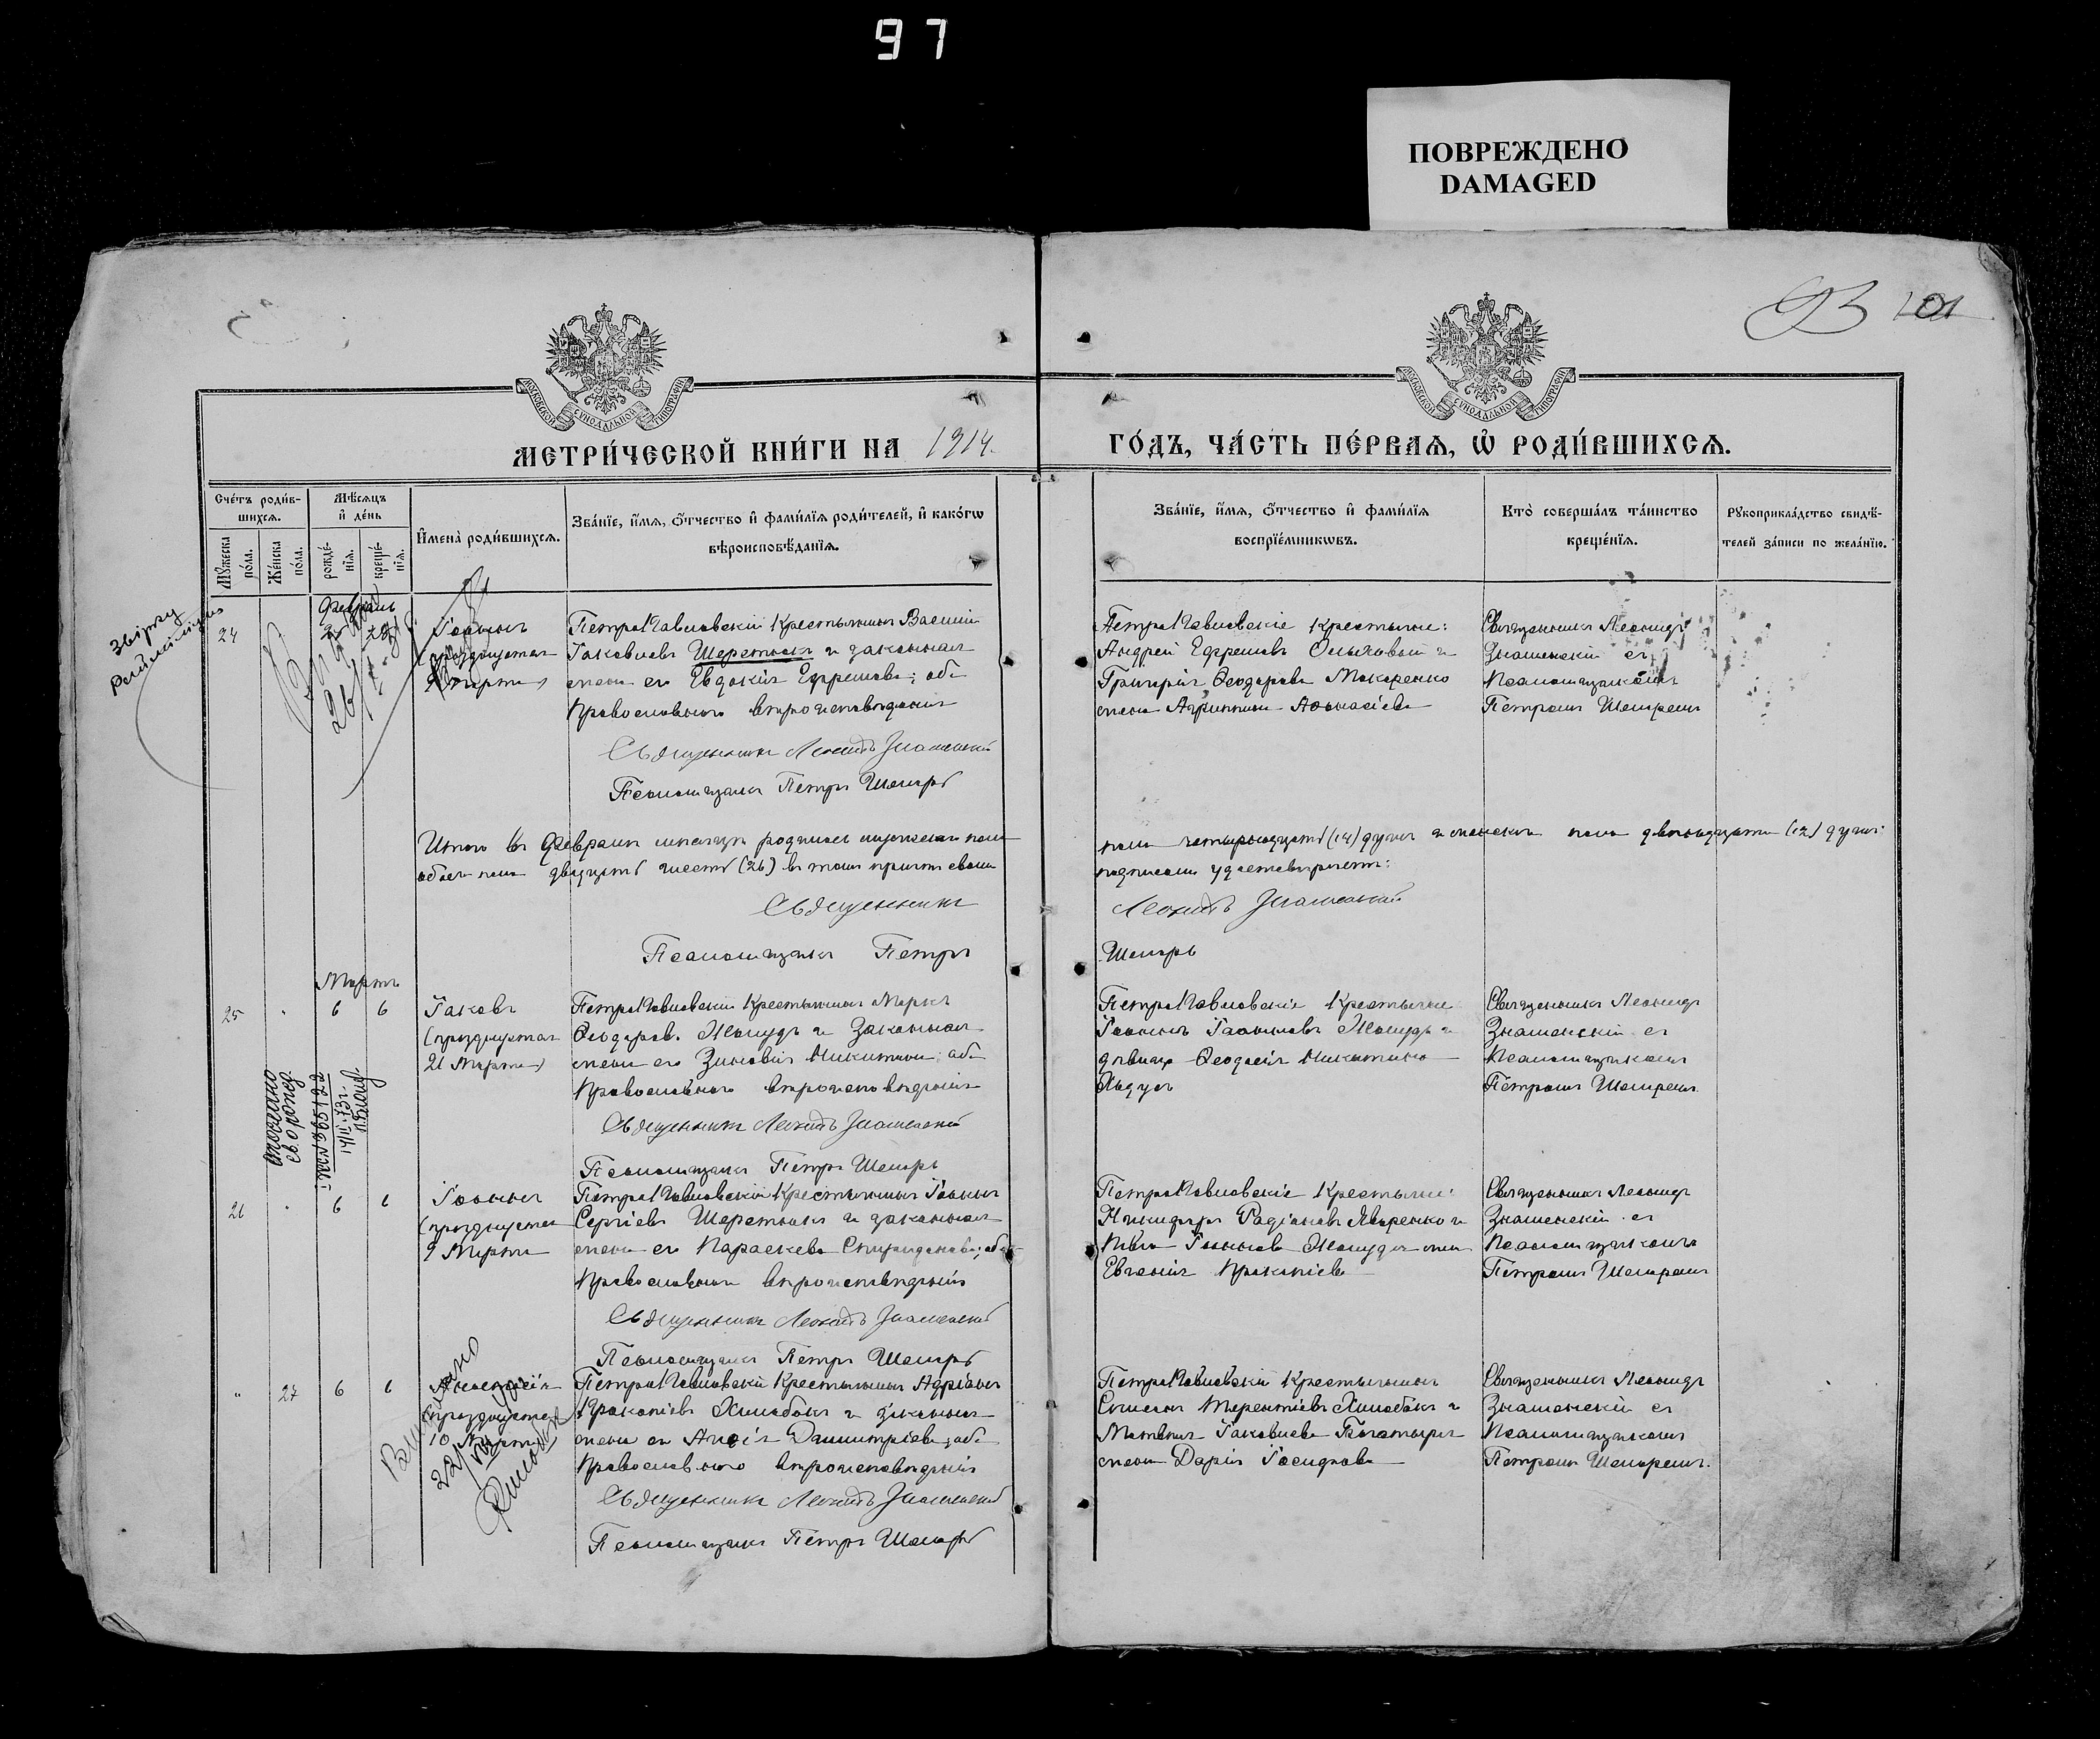 97
ПОВРЕЖДЕНО
DAMAGED
93 101
МОСКОВСКОЙ СУНОДАЛЬНОЙ ТИПОГРАФІИ
МОСКОВСКОЙ СУНОДАЛЬНОЙ ТИПОГРАФІИ
МЕТРИ́ЧЕСКОЙ КНИ́ГИ НА 1914.
ГО́ДЪ, ЧА́СТЬ ПЕ́РВАЯ, Ѡ҆ РОДИ́ВШИХСЯ.
Сче́тъ роди́в-
шихся.
Мꙋ́жеска по́ла.
Же́нска по́ла.
Мѣ́сяцъ
и҆ де́нь
рожде́-
нїѧ.
креще́-
нїѧ.
И҆мена̀ роди́вшихсѧ.
Зва́нїе, и҆́мѧ, ѻ҆́тчество и҆ фами́лїѧ роди́телей, и҆ како́гѡ
вѣроисповѣ́данїѧ.
Зва́нїе, и҆́мѧ, ѻ҆́тчество и҆ фами́лїѧ
воспрїе́мникѡвъ.
Кто̀ соверша́лъ та́инство
креще́нїѧ.
Рꙋкоприкла́дство свидѣ́-
телей за́писи по жела́нїю.
звірку
Февраль
24
Іоаннъ
(празднуетъ
Марта)
ПетроПавловскій крестьянинъ Василій
Іаковлевъ Шеретюкъ и законная
жена его Евдокія Ефремова; оба
православнаго вѣроисповѣданія
Священникъ Леонидъ Знаменскій
Псаломщикъ Петръ Шемаръ
ПетроПавловскіе крестьяне:
Андрей Ефремовъ и
Григорія Ѳеодорова Макаренко
жена Агриппина Аѳанасіева
Священникъ Леонидъ
Знаменскій съ
Псаломщикомъ
Петромъ Шемаремъ
Итого въ Февралѣ мѣсяцѣ родилось мужескаго пола
пола четырнадцать (14) душъ и женскаго пола двѣнадцать (12) душъ
обоего пола двадцать шесть (26) въ томъ причтъ своимъ
подписомъ удостовѣряетъ:
Священникъ
Леонидъ Знаменскій
Псаломщикъ Петръ
Шемаръ
Мартъ
25 " 6 6
Іаковъ
(празднуетъ
21 Марта)
ПетроПавловскій крестьянинъ Маркъ
Ѳеодоровъ и законная
жена его Зиновія Никитина; оба
православнаго вѣроисповѣданія
Священникъ Леонидъ Знаменскій
Псаломщикъ Петръ Шемаръ
ПетроПавловскіе крестьяне
Іоаннъ Іоанновъ и
дѣвица Ѳеодосія Никитина
Священникъ Леонидъ
Знаменскій съ
Псаломщикомъ
Петромъ Шемаремъ
26 " 6 6
Іоаннъ
(празднуетъ
9 Марта
ПетроПавловскій крестьянинъ Іоаннъ
Сергіевъ Шеретюкъ и законная
жена его Параскева Спиридонова; оба
православнаго вѣроисповѣданія
Священникъ Леонидъ Знаменскій
Псаломщикъ Петръ Шемаръ
ПетроПавловскіе крестьяне:
Никифоръ Радіоновъ Яваренко и
жена
Евгенія Прокопіева
Священникъ Леонидъ
Знаменскій съ
Псаломщикомъ
Петромъ Шемаремъ
" 27 6 6
Анастасія
(празднуетъ
10 Марта)
22/VII
ПетроПавловскій крестьянинъ Адріанъ
Прокопіевъ Хлиобокъ и законная
жена его Димитріева; оба
православнаго вѣроисповѣданія
Священникъ Леонидъ Знаменскій
Псаломщикъ Петръ Шемаръ
ПетроПавловскій крестьянинъ
Терентіевъ Хлиобокъ и
Матѳея Іаковлева Богатыря
жена Дарія Іосифова
Священникъ Леонидъ
Знаменскій съ
Псаломщикомъ
Петромъ Шемаремъ.